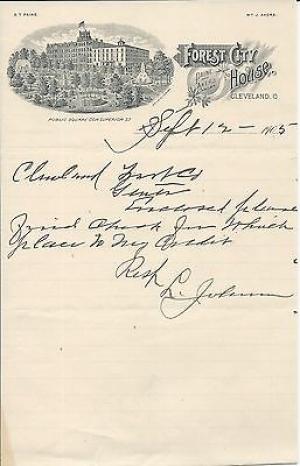 S. T. PAINE.
WM J. AKERS.
FOREST CITY
HOUSE,
PUBLIC SQUARE COR. SUPERIOR ST.
CLEVELAND, O.
Sept 12 - 1905
Cleveland Trust Co
Gents
Enclosed please
find Check for Which
place to My Credit
Resp
L. Johnson